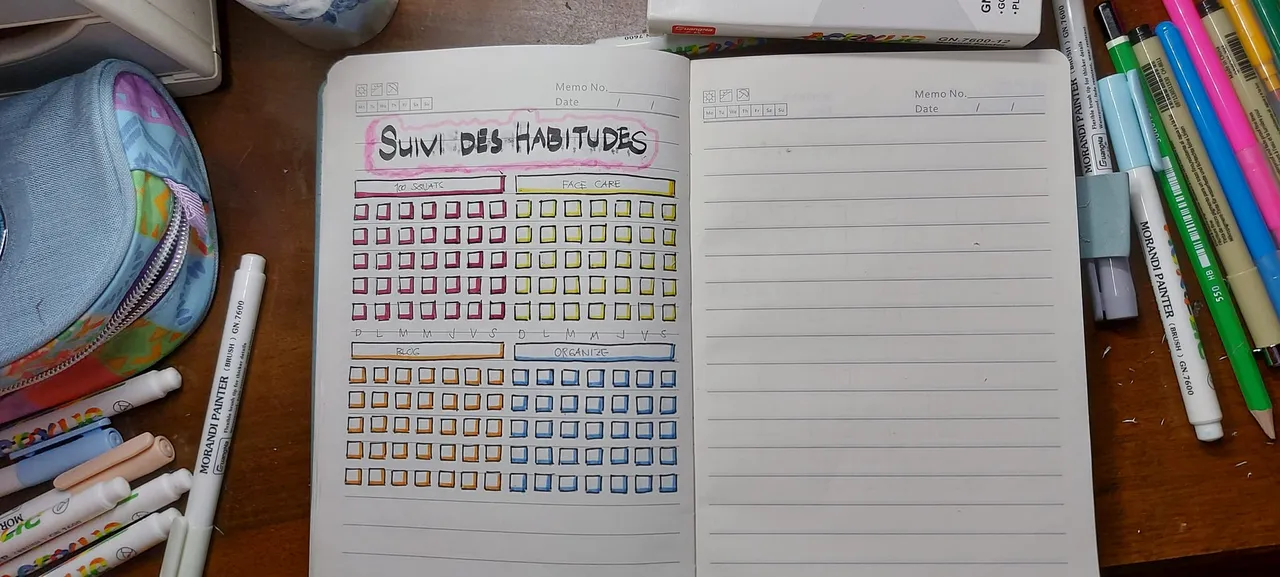 GN.7600-12
Memo No.
Date / /
Mo Tu We Th Fr Sa Su
SUIVI DES HABITUDES
100 SQUATS FACE CARE
D L M M J V S D L M M J V S
BLOG ORGANIZE
Memo No.
Date / /
Mo Tu We Th Fr Sa Su
MORANDI PAINTER (BRUSH) GN.7600
Flexible brush tip for thicker details
Guangna
MORANDI PAINTER
Guangna
MORANDI PAINTER (BRUSH) GN.7600
HB 550